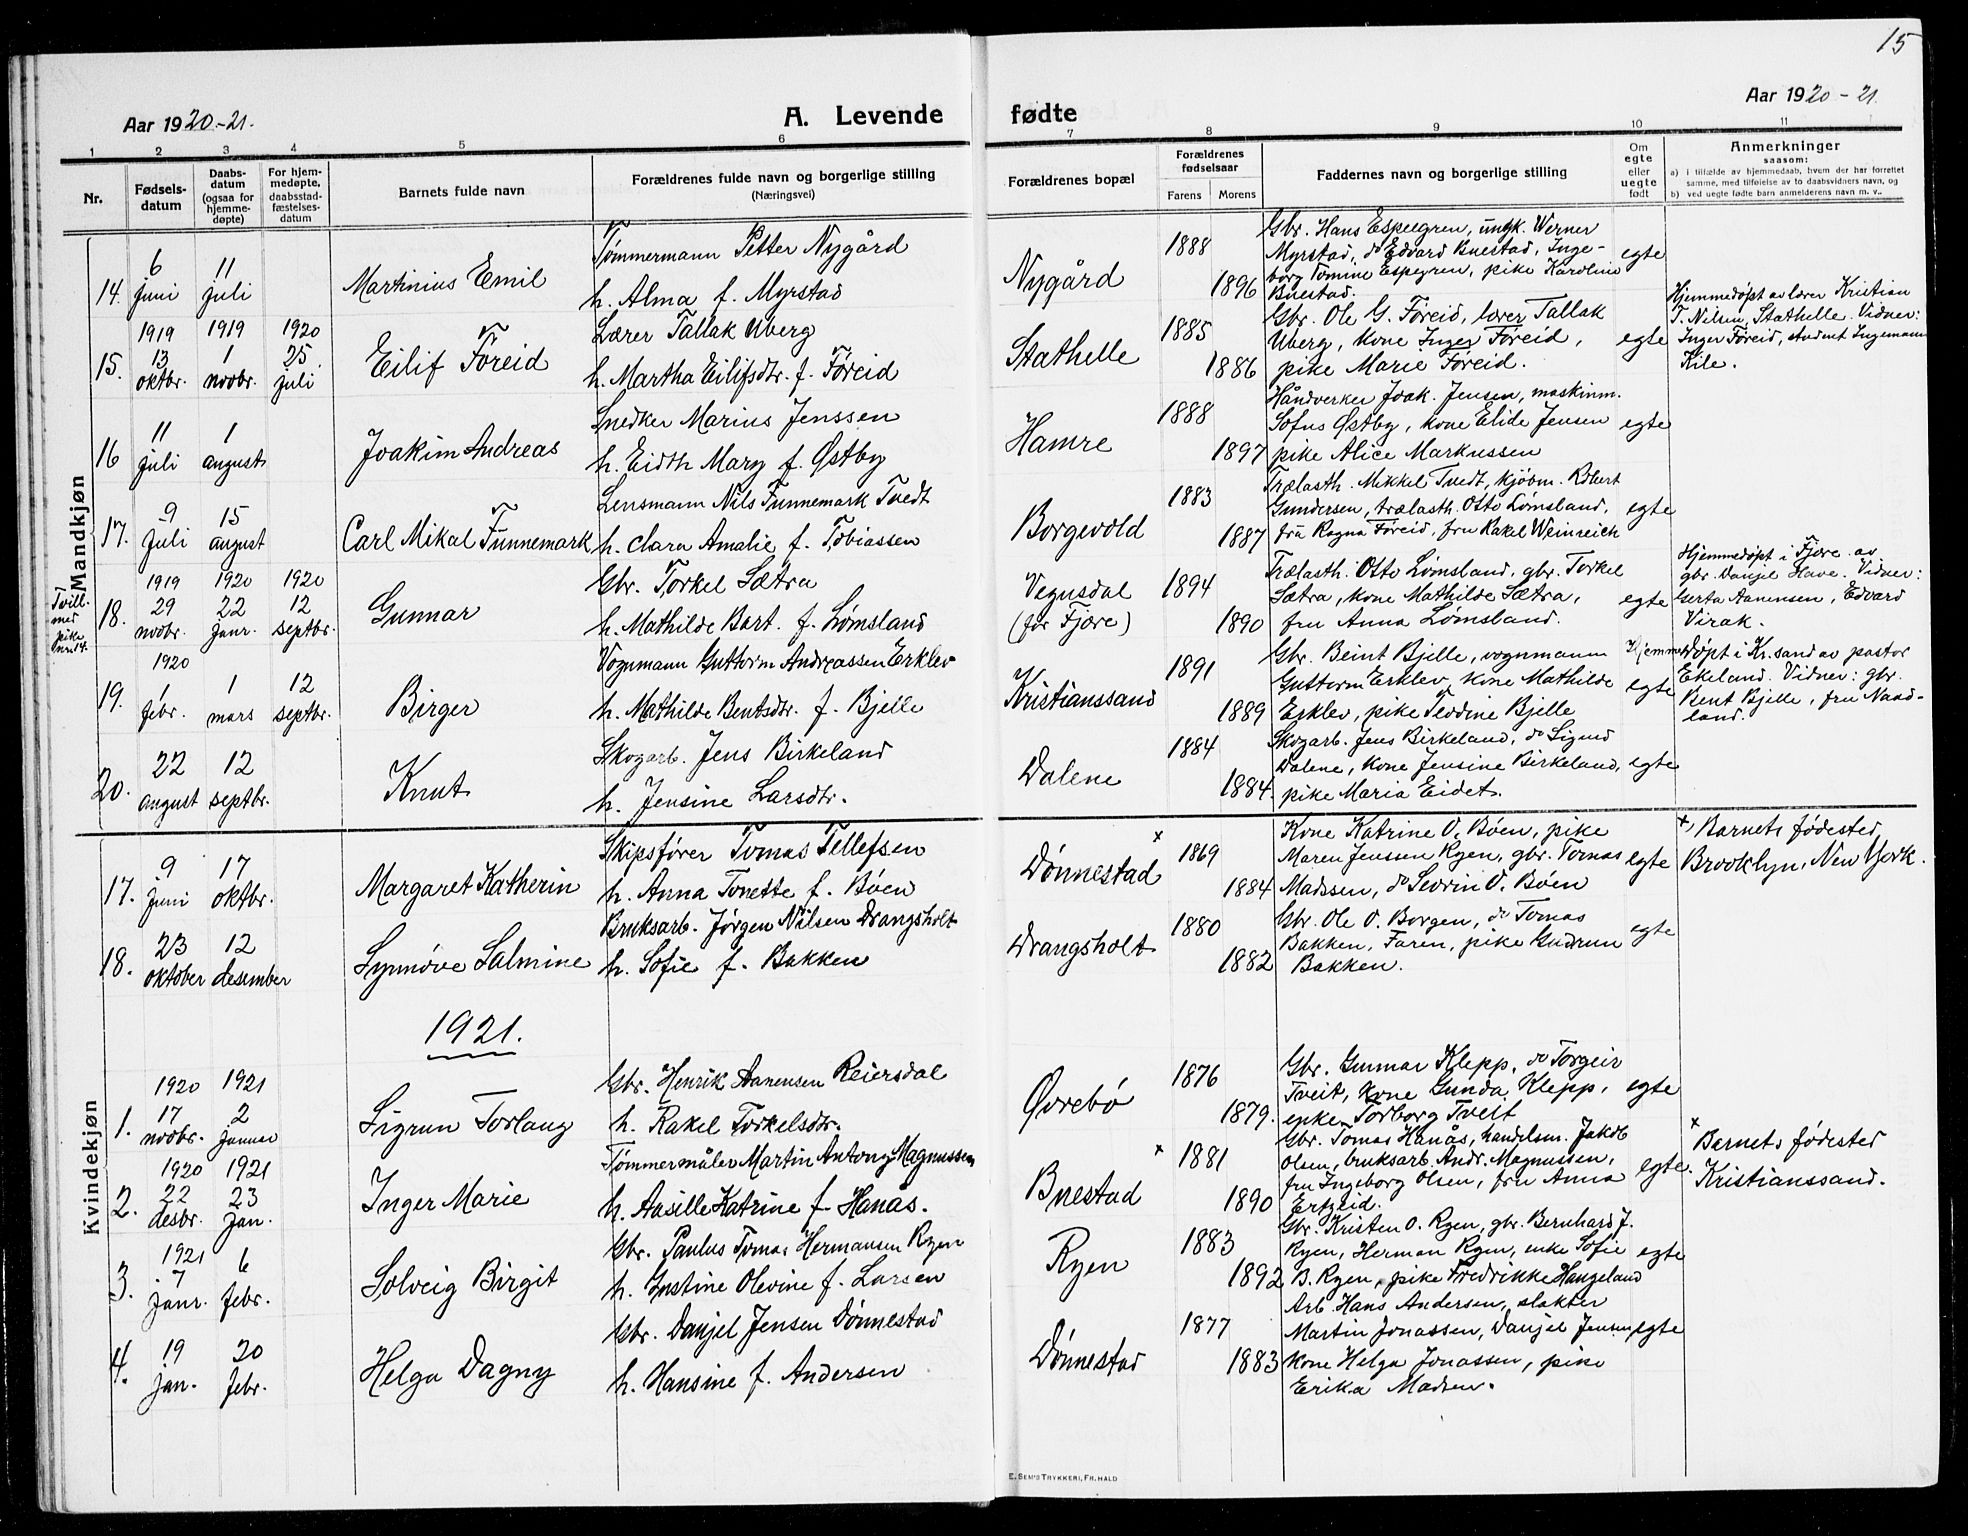 15
Aar 1920-21.
A. Levende
fødte
Aar 1920-21
1 2 3 4 5 6 7 8 9 10 11
Nr.
Fødsels-
datum
Daabs-
datum
(ogsaa for
hjemme-
døpte)
For hjem-
medøpte,
daabsstad-
fæstelses-
datum
Barnets fulde navn
Forældrenes fulde navn og borgerlige stilling
(Næringsvei)
Forældrenes bopæl
Forældrenes
fødselsaar
Farens Morens
Faddernes navn og borgerlige stilling
Om
egte
eller
uegte
født
Anmerkninger
saasom:
a) i tilfælde av hjemmedaab, hvem der har forrettet
samme, med tilføielse av to daabsvidners navn, og
b) ved uegte født barn anmelderens navn m. v..
Mandkjøn
14.
6
juni
11
juli
Martinius Emil
Tømmermann Petter Nygård
h. Alma f. Myrstad
Nygård
1888
1896
Gbr. Hans Espegren, ungk. Werner
Myrstad, do Edvard Buestad, Inge-
borg Tomine Espegren, pike Karoline
Buestad.
egte
15.
1919
13
oktbr.
1919
1
novbr.
1920
25
juli
Eilif Føreid
Lærer Tallak Uberg
h. Martha Eilifsdtr. f. Føreid
Stathelle
1885
1886
Gbr. Ole G. Føreid, lærer Tallak
Uberg, kone Inger Føreid,
pike Marie Føreid.
egte
Hjemmedøpt av lærer Kristian
T. Nilsen, Stathelle. Vidner:
Inger Føreid, student Ingemann
Kile.
16
11
juli
1
august
Joakim Andreas
Snedker Marius Jenssen
h. Eidth Mary f. Østby
Hamre
1888
1897
Håndverker Joak. Jensen, maskinm.
Sofus Østby, kone Elide Jensen
pike Alice Markussen
egte
17.
9
juli
15
august
Carl Mikal Tunnemark
Lensmann Nils Tunnemark Tvedt
h. Clara Amalie f. Tobiassen
Borgevold
1883
1887
Trælasth. Mikkel Tvedt, kjøbm. Robert
Gundersen, trælasth. Otto Lømsland,
fru Ragna Føreid, fru Rakel Weinreich
egte
Tvill.
med
pike
nr. 14.
18.
1919
29
novbr.
1920
22
janr.
1920
12
septbr.
Gunnar
Gbr. Torkel Sætra
h. Mathilde Bart. f. Lømsland
Vegusdal
(før Fjære)
1894
1890
Trælasth. Otto Lømsland, gbr. Torkel
Sætra, kone Mathilde Sætra,
fru Anna Lømsland.
egte
Hjemmedøpt i Fjære av
gbr. Danjel Have. Vidner:
Gerta Aanensen, Edvard
Virak.
19.
1920
1
febr.
1
mars
12
septbr.
Birger
Vognmann Guttorm Andreassen Erklev
h. Mathilde Bentsdtr. f. Bjelle
Kristianssand
1891
1889
Gbr. Beint Bjelle, vognmann
Guttorm Erklev, kone Mathilde
Erklev, pike Teodine Bjelle
egte
Hjemmedøpt i Kr.sand av pastor
Ekeland. Vidner: gbr.
Bent Bjelle, fru Naad-
land.
20.
22
august
12
septbr.
Knut
Skogarb. Jens Birkeland
h. Jensine Larsdtr.
Dalene
1884
1884.
Skogarb. Jens Birkeland, do Sigurd
Dalene, kone Jensine Birkeland,
pike Maria Eidet.
egte
Kvindekjøn
17.
9
juni
17
oktbr.
Margaret Katherin
Skipsfører Tomas Tellefsen
h. Anna Tonette f. Bøen
Dønnestad x
1869
1884
Kone Katrine O. Bøen, pike
Maren Jenssen Ryen, gbr. Tomas
Madssen, do Sevrin O. Bøen
egte
x, Barnets fødested
Brooklyn, New York.
18.
23
oktober
12
desember
Synnøve Salmine
Bruksarb. Jørgen Nilsen Drangsholt
h. Sofie f. Bakken
Drangsholt
1880
1882
Gbr. Ole O. Borgen, do Tomas
Bakken, Faren, pike Gudrun
Bakken.
egte
1921.
1.
1920
17
novbr.
1921
2
januar
Sigrun Torlaug
Gbr. Henrik Aanensen Reiersdal
h. Rakel Torkelsdtr.
Øvrebø
1876
1879.
Gbr. Gunnar Klepp, do Torgeir
Tveit, kone Gunda Klepp,
enke Torborg Tveit
egte
2.
1920
22
desbr.
1921
23
jan.
Inger Marie
Tømmermåler Martin Antony Magnussen
h. Aasille Katrine f. Hanås.
Buestad x
1881
1890
Gbr. Tomas Hanås, handelsm. Jakob
Olsen, bruksarb. Andr. Magnussen,
fru Ingeborg Olsen, fru Anna
Ertzeid.
egte.
x
Barnets fødested
Kristianssand.
3.
1921
7
janr.
6
febr.
Solveig Birgit
Gbr. Paulus Tomas Hermansen Ryen
h. Gustine Olevine f. Larsen
Ryen
1883
1892
Gbr. Kristen O. Ryen, gbr. Bernhard J.
Ryen, Herman Ryen, enke Sofie
B. Ryen, pike Fredrikke Haugeland
egte
4.
19
jan.
20
febr.
Helga Dagny
Gbr. Danjel Jensen Dønnestad
h. Hansine f. Andersen
Dønnestad
1877
1883
Arb. Hans Andersen, slakter
Martin Jonassen, Danjel Jensen,
kone Helga Jonassen, pike
Erika Madsen.
egte
E. SEM'S TRYKKERI, FR.HALD